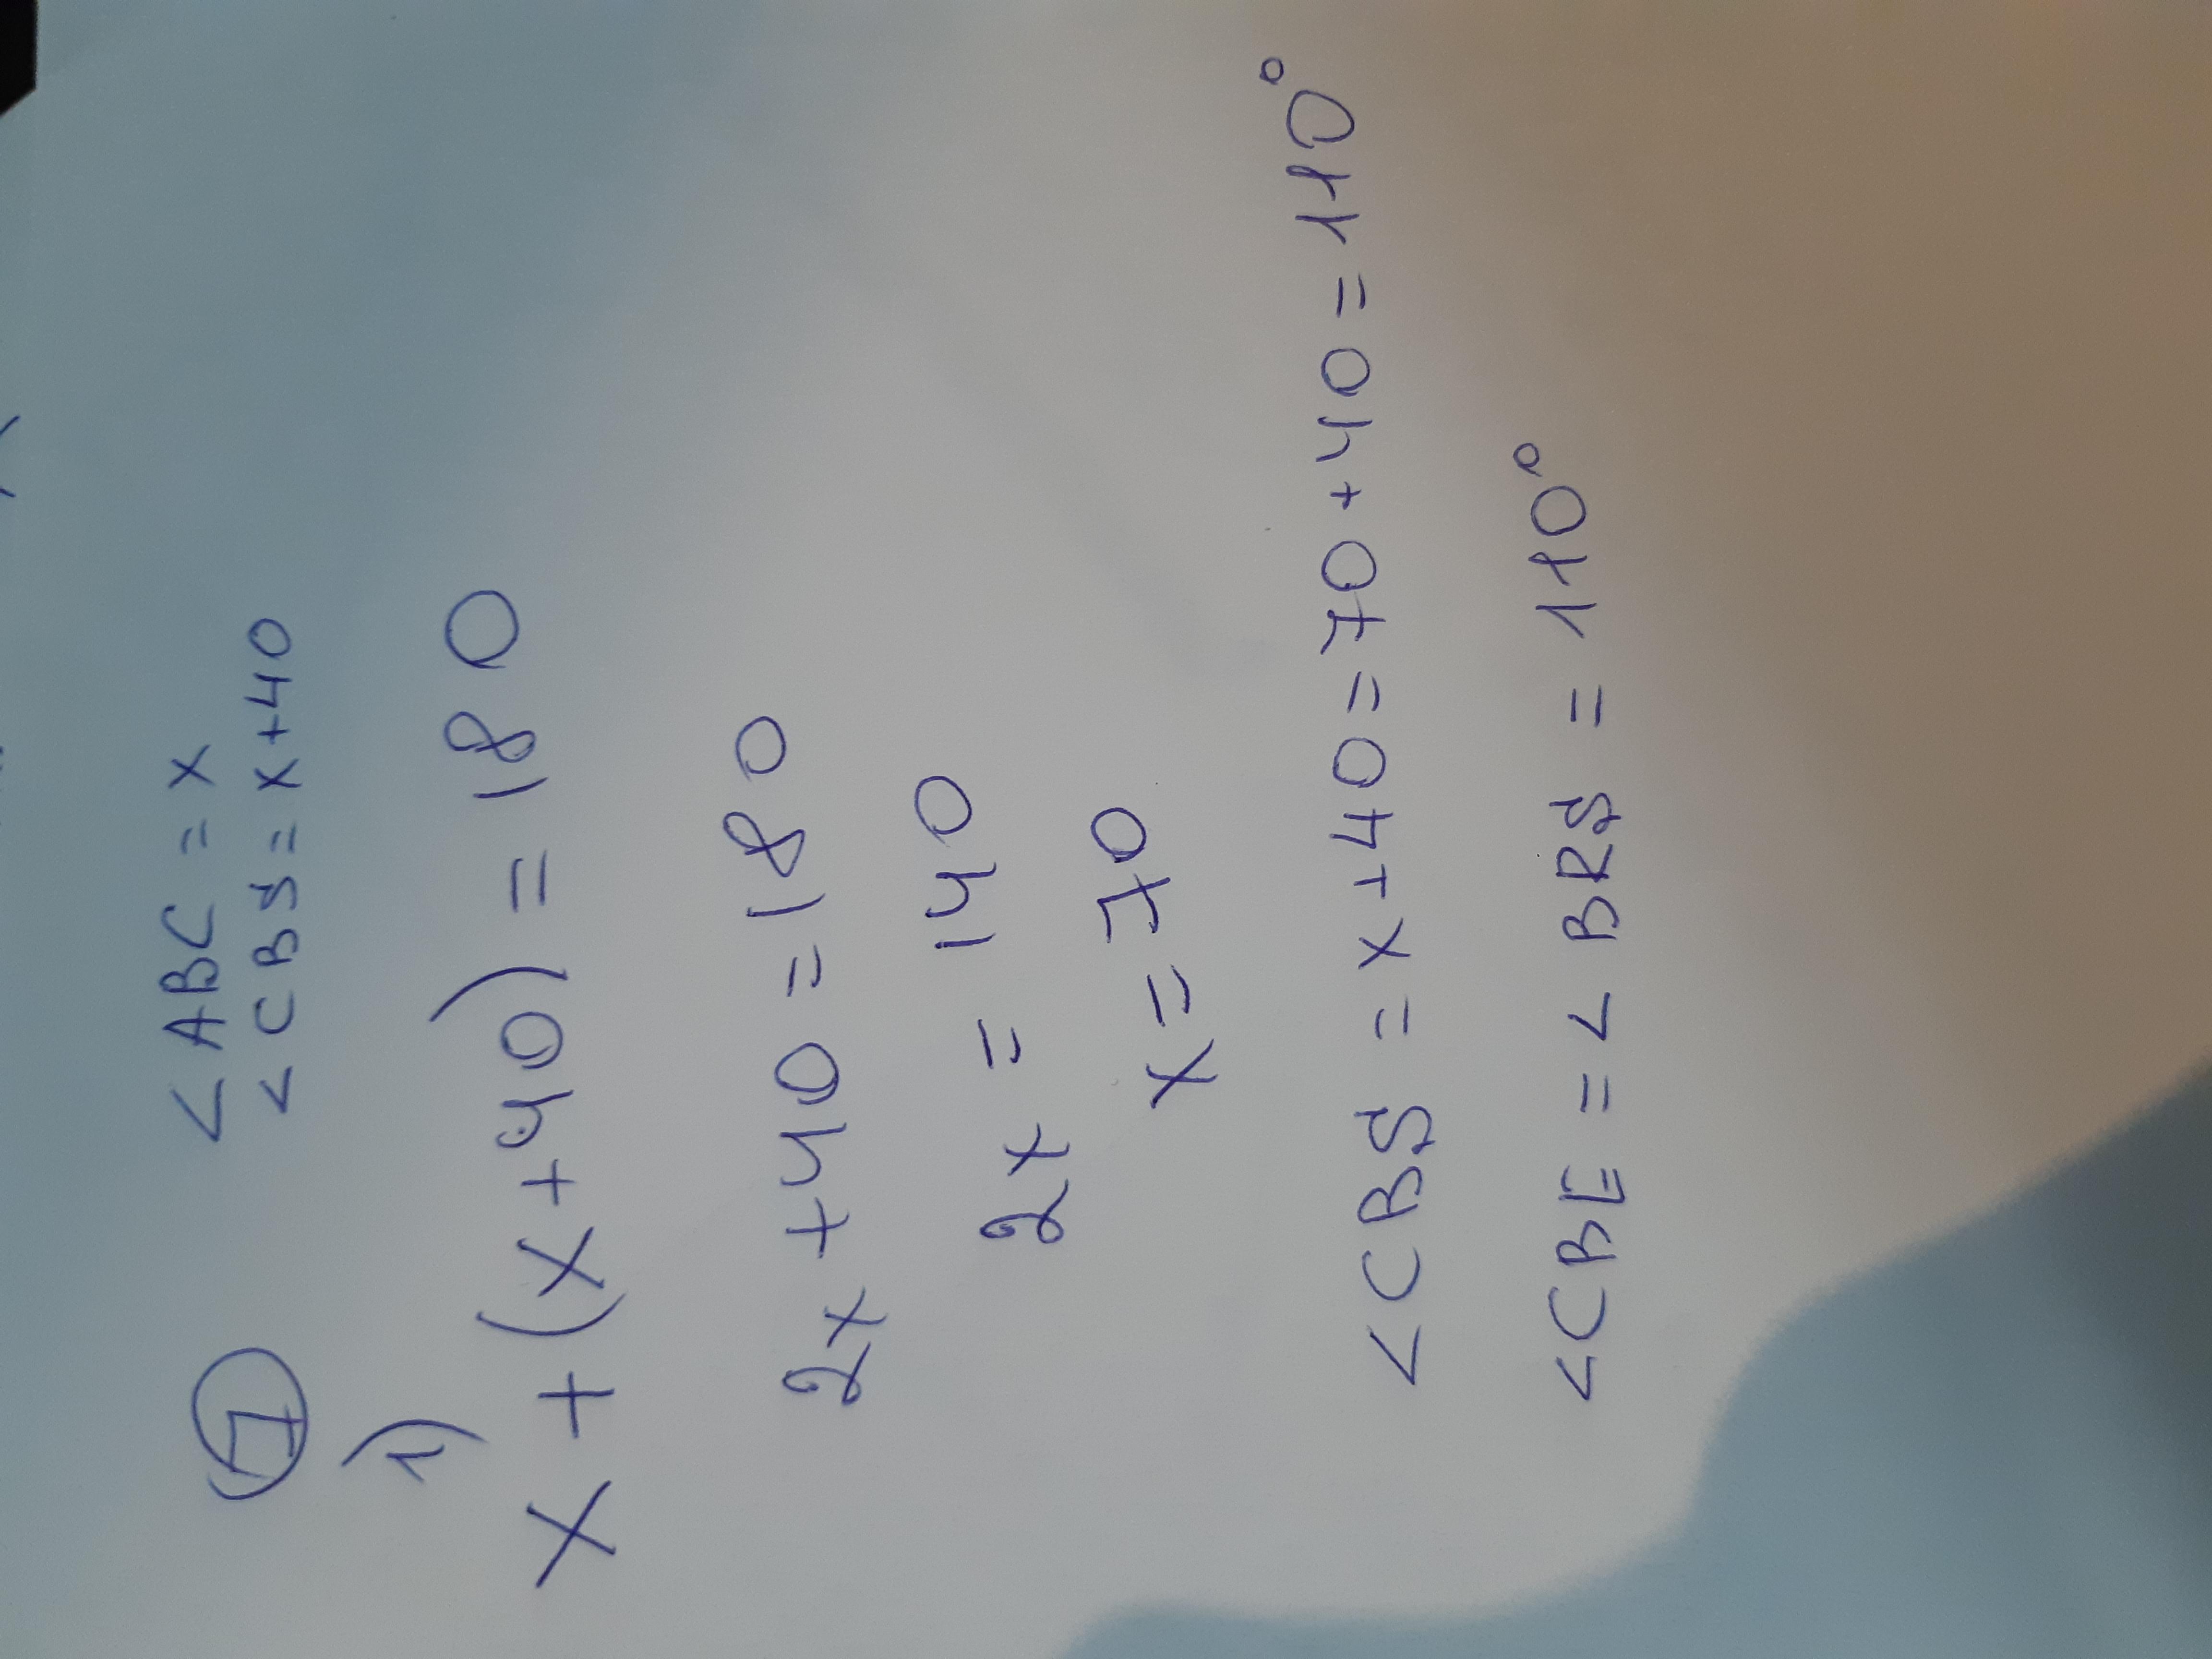 7
<ABC = x
<CBS = x+40
1)
x + (x+40) = 180
2x +40 = 180
2x = 140
x = 70
<CBS = x+40 = 70+40 = 110°
<CBE = < BRS = 110°